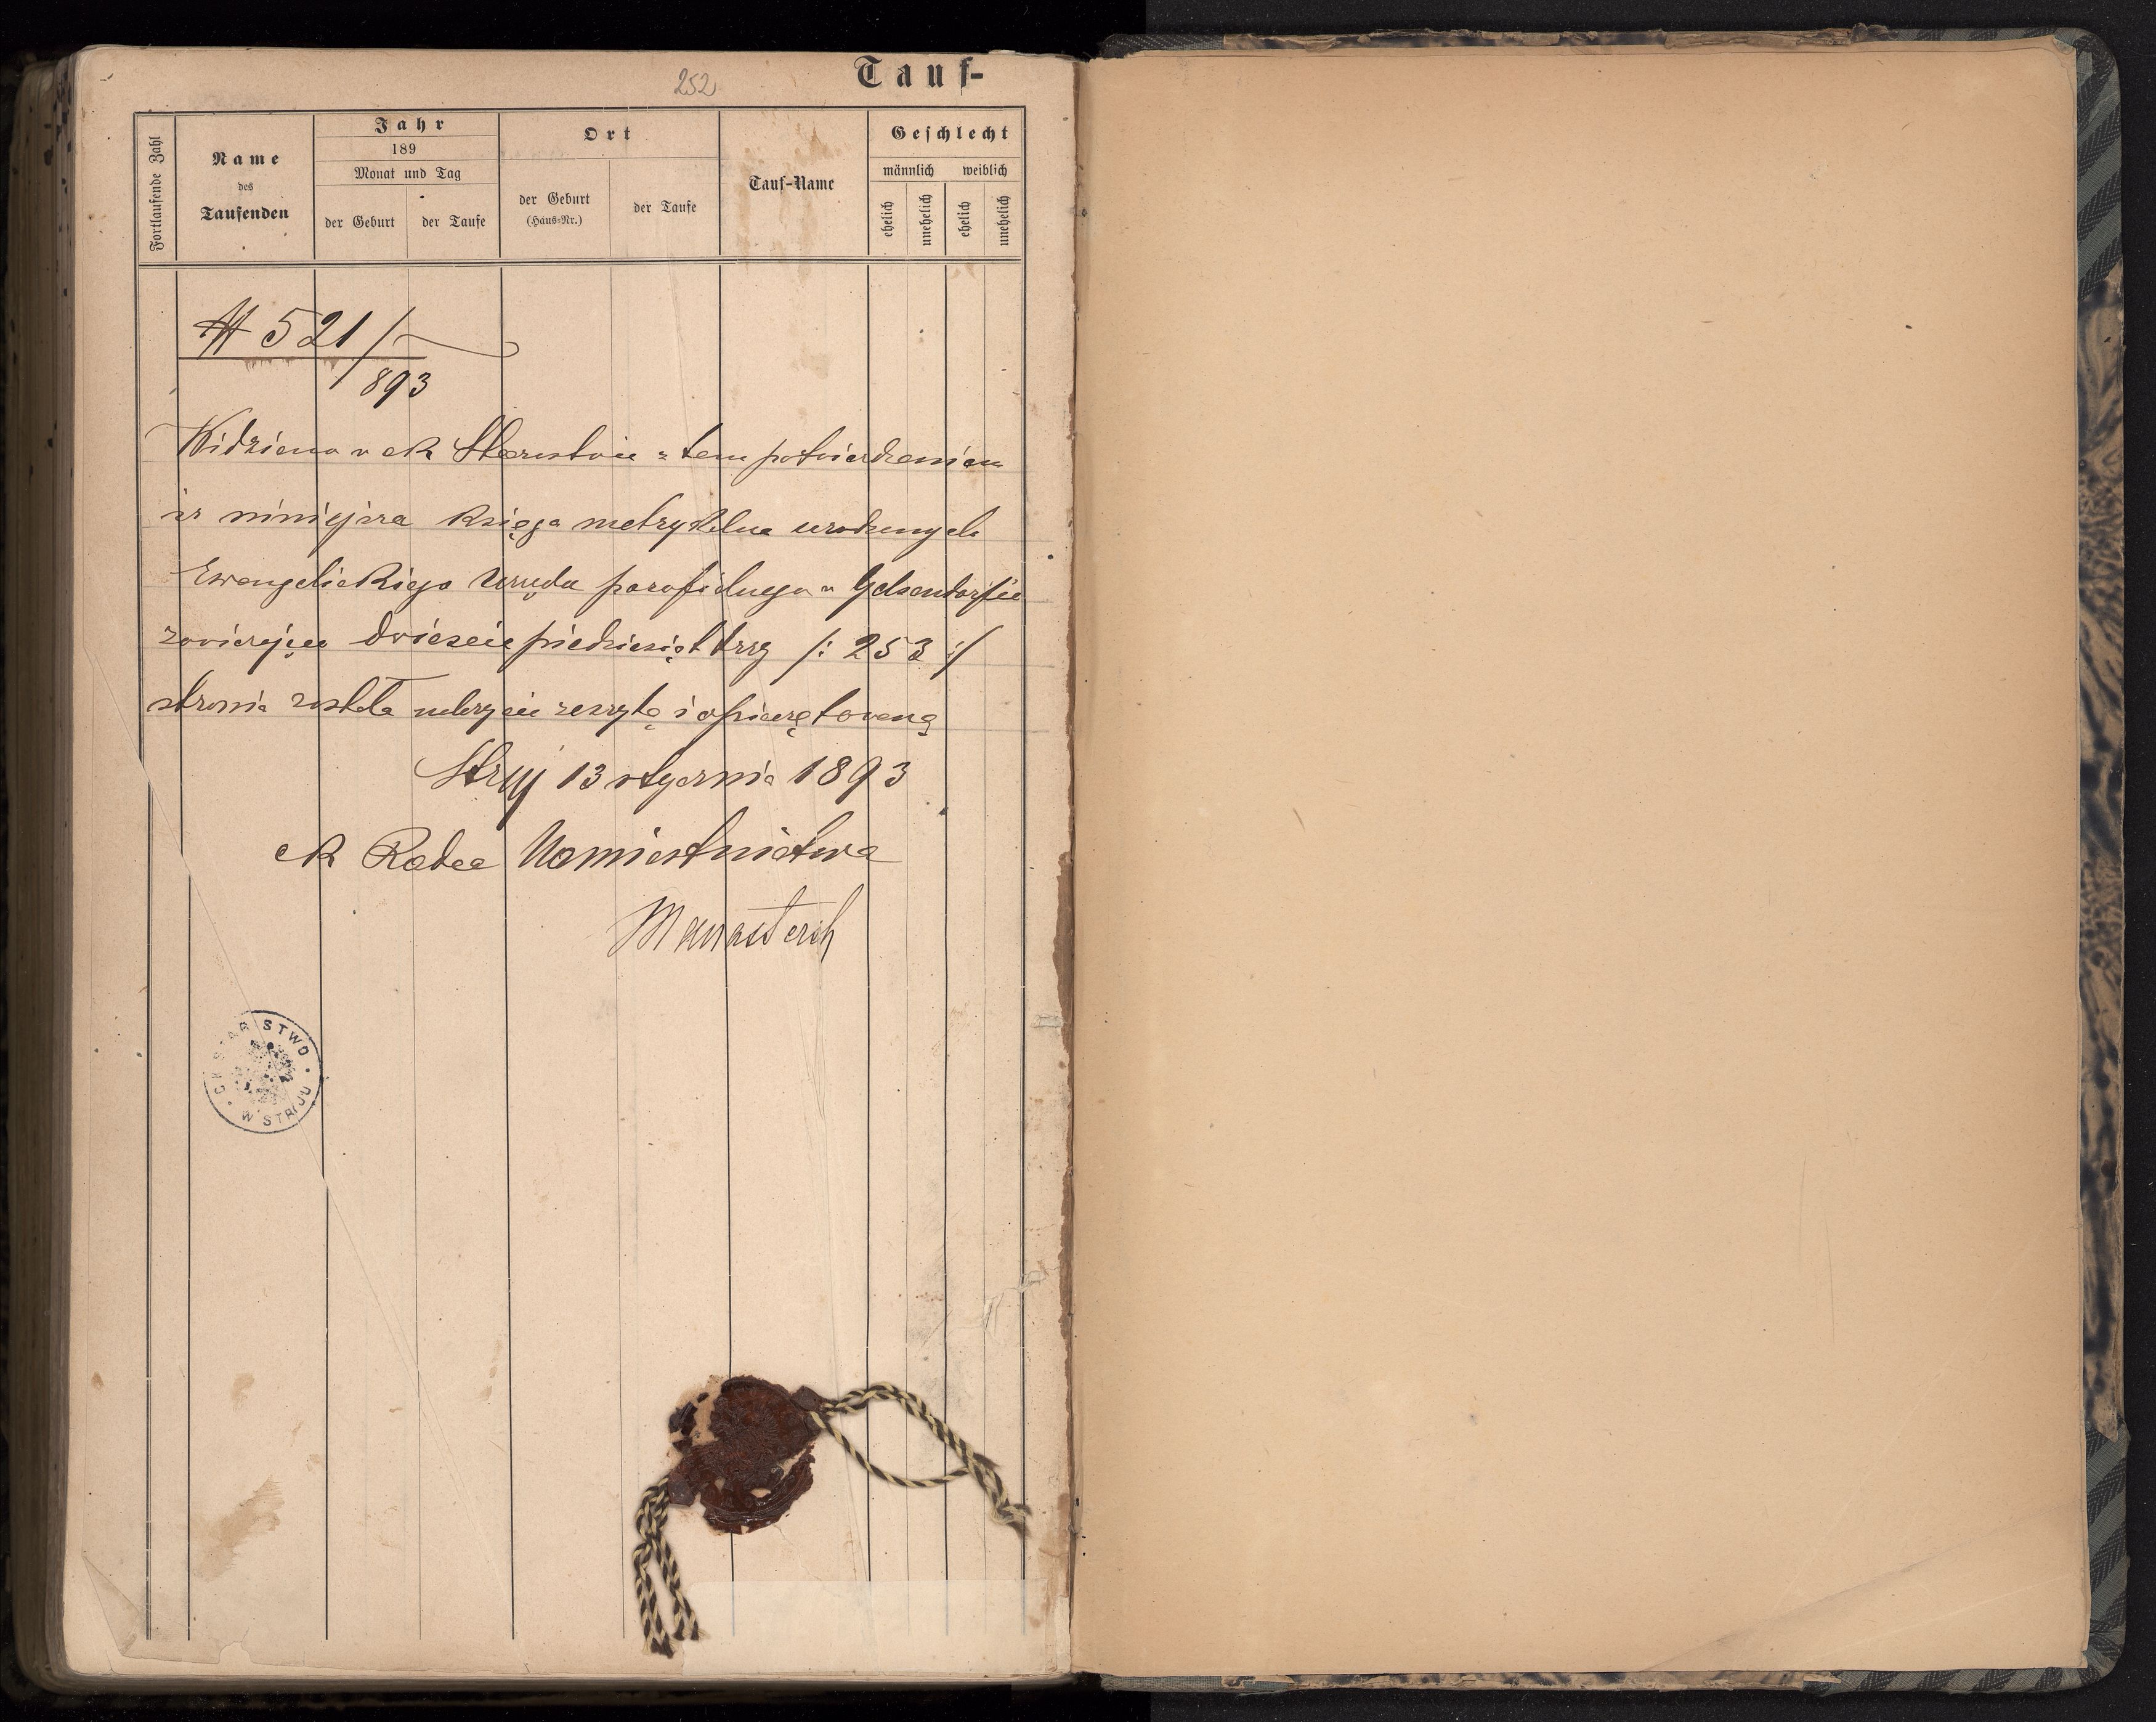 252
Tauf-
Fortlaufende Zahl
Name
des
Taufenden
Jahr
189
Monat und Tag
der Geburt
der Taufe
Ort
der Geburt
(Haus-Nr.)
der Taufe
Tauf-Name
Geschlecht
männlich
weiblich
ehelich
unehelich
ehelich
unehelich
521/
893
Widziano w ck Starostwie z tem potwierdzeniem
iż niniejsza księga metrykalna urodzonych
Ewangelickiego Urzędu parafialnego w Gelsendorfie
zawierająca dwieście piedziesiąt trzy /: 253 :/
stronic została należycie zeszytą i opieczętowaną
Stryj 13 stycznia 1893
ck Radca Namiestnictwa
C.K. STAROSTWO
W STRYJU